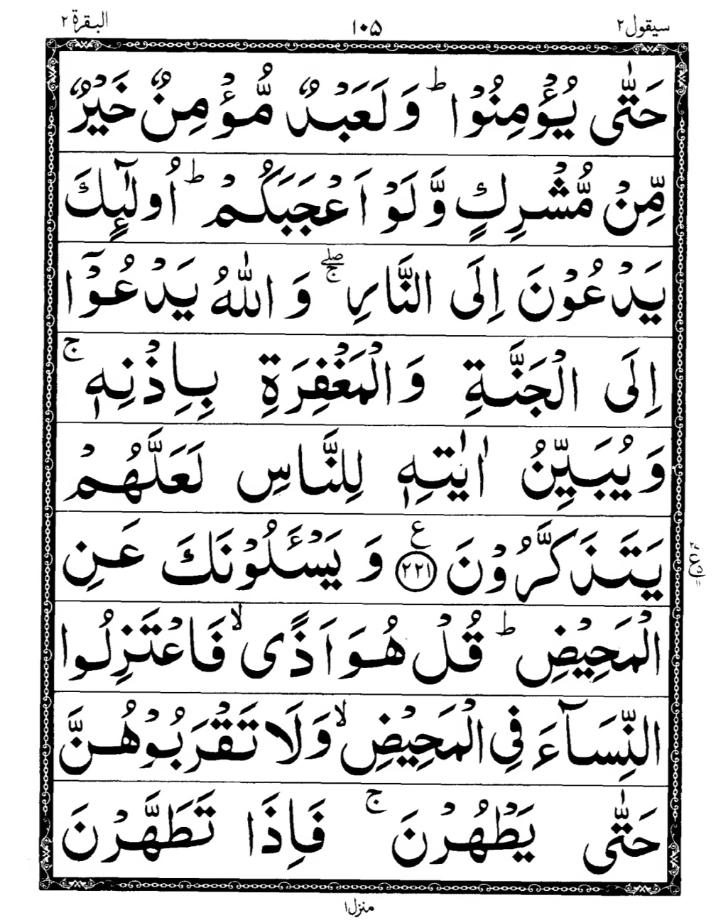 سيقول٢ ١٠٥ البقرة٢
حَتّٰى يُؤْمِنُوْا ؕ وَ لَعَبْدٌ مُّؤْمِنٌ خَيْرٌ
مِّنْ مُّشْرِكٍ وَّ لَوْ اَعْجَبَكُمْ ؕ اُولٰٓئِكَ
يَدْعُوْنَ اِلَى النَّارِ ۖۚ وَ اللّٰهُ يَدْعُوْۤا
اِلَى الْجَنَّةِ وَ الْمَغْفِرَةِ بِاِذْنِهٖ ۚ
وَ يُبَيِّنُ اٰيٰتِهٖ لِلنَّاسِ لَعَلَّهُمْ
يَتَذَكَّرُوْنَ ع ﴿٢٢١﴾ وَ يَسْـَٔلُوْنَكَ عَنِ
الْمَحِيْضِ ؕ قُلْ هُوَ اَذًى ۙ فَاعْتَزِلُوا
النِّسَآءَ فِى الْمَحِيْضِ ۙ وَ لَا تَقْرَبُوْهُنَّ
حَتّٰى يَطْهُرْنَ ۚ فَاِذَا تَطَهَّرْنَ
منزل١